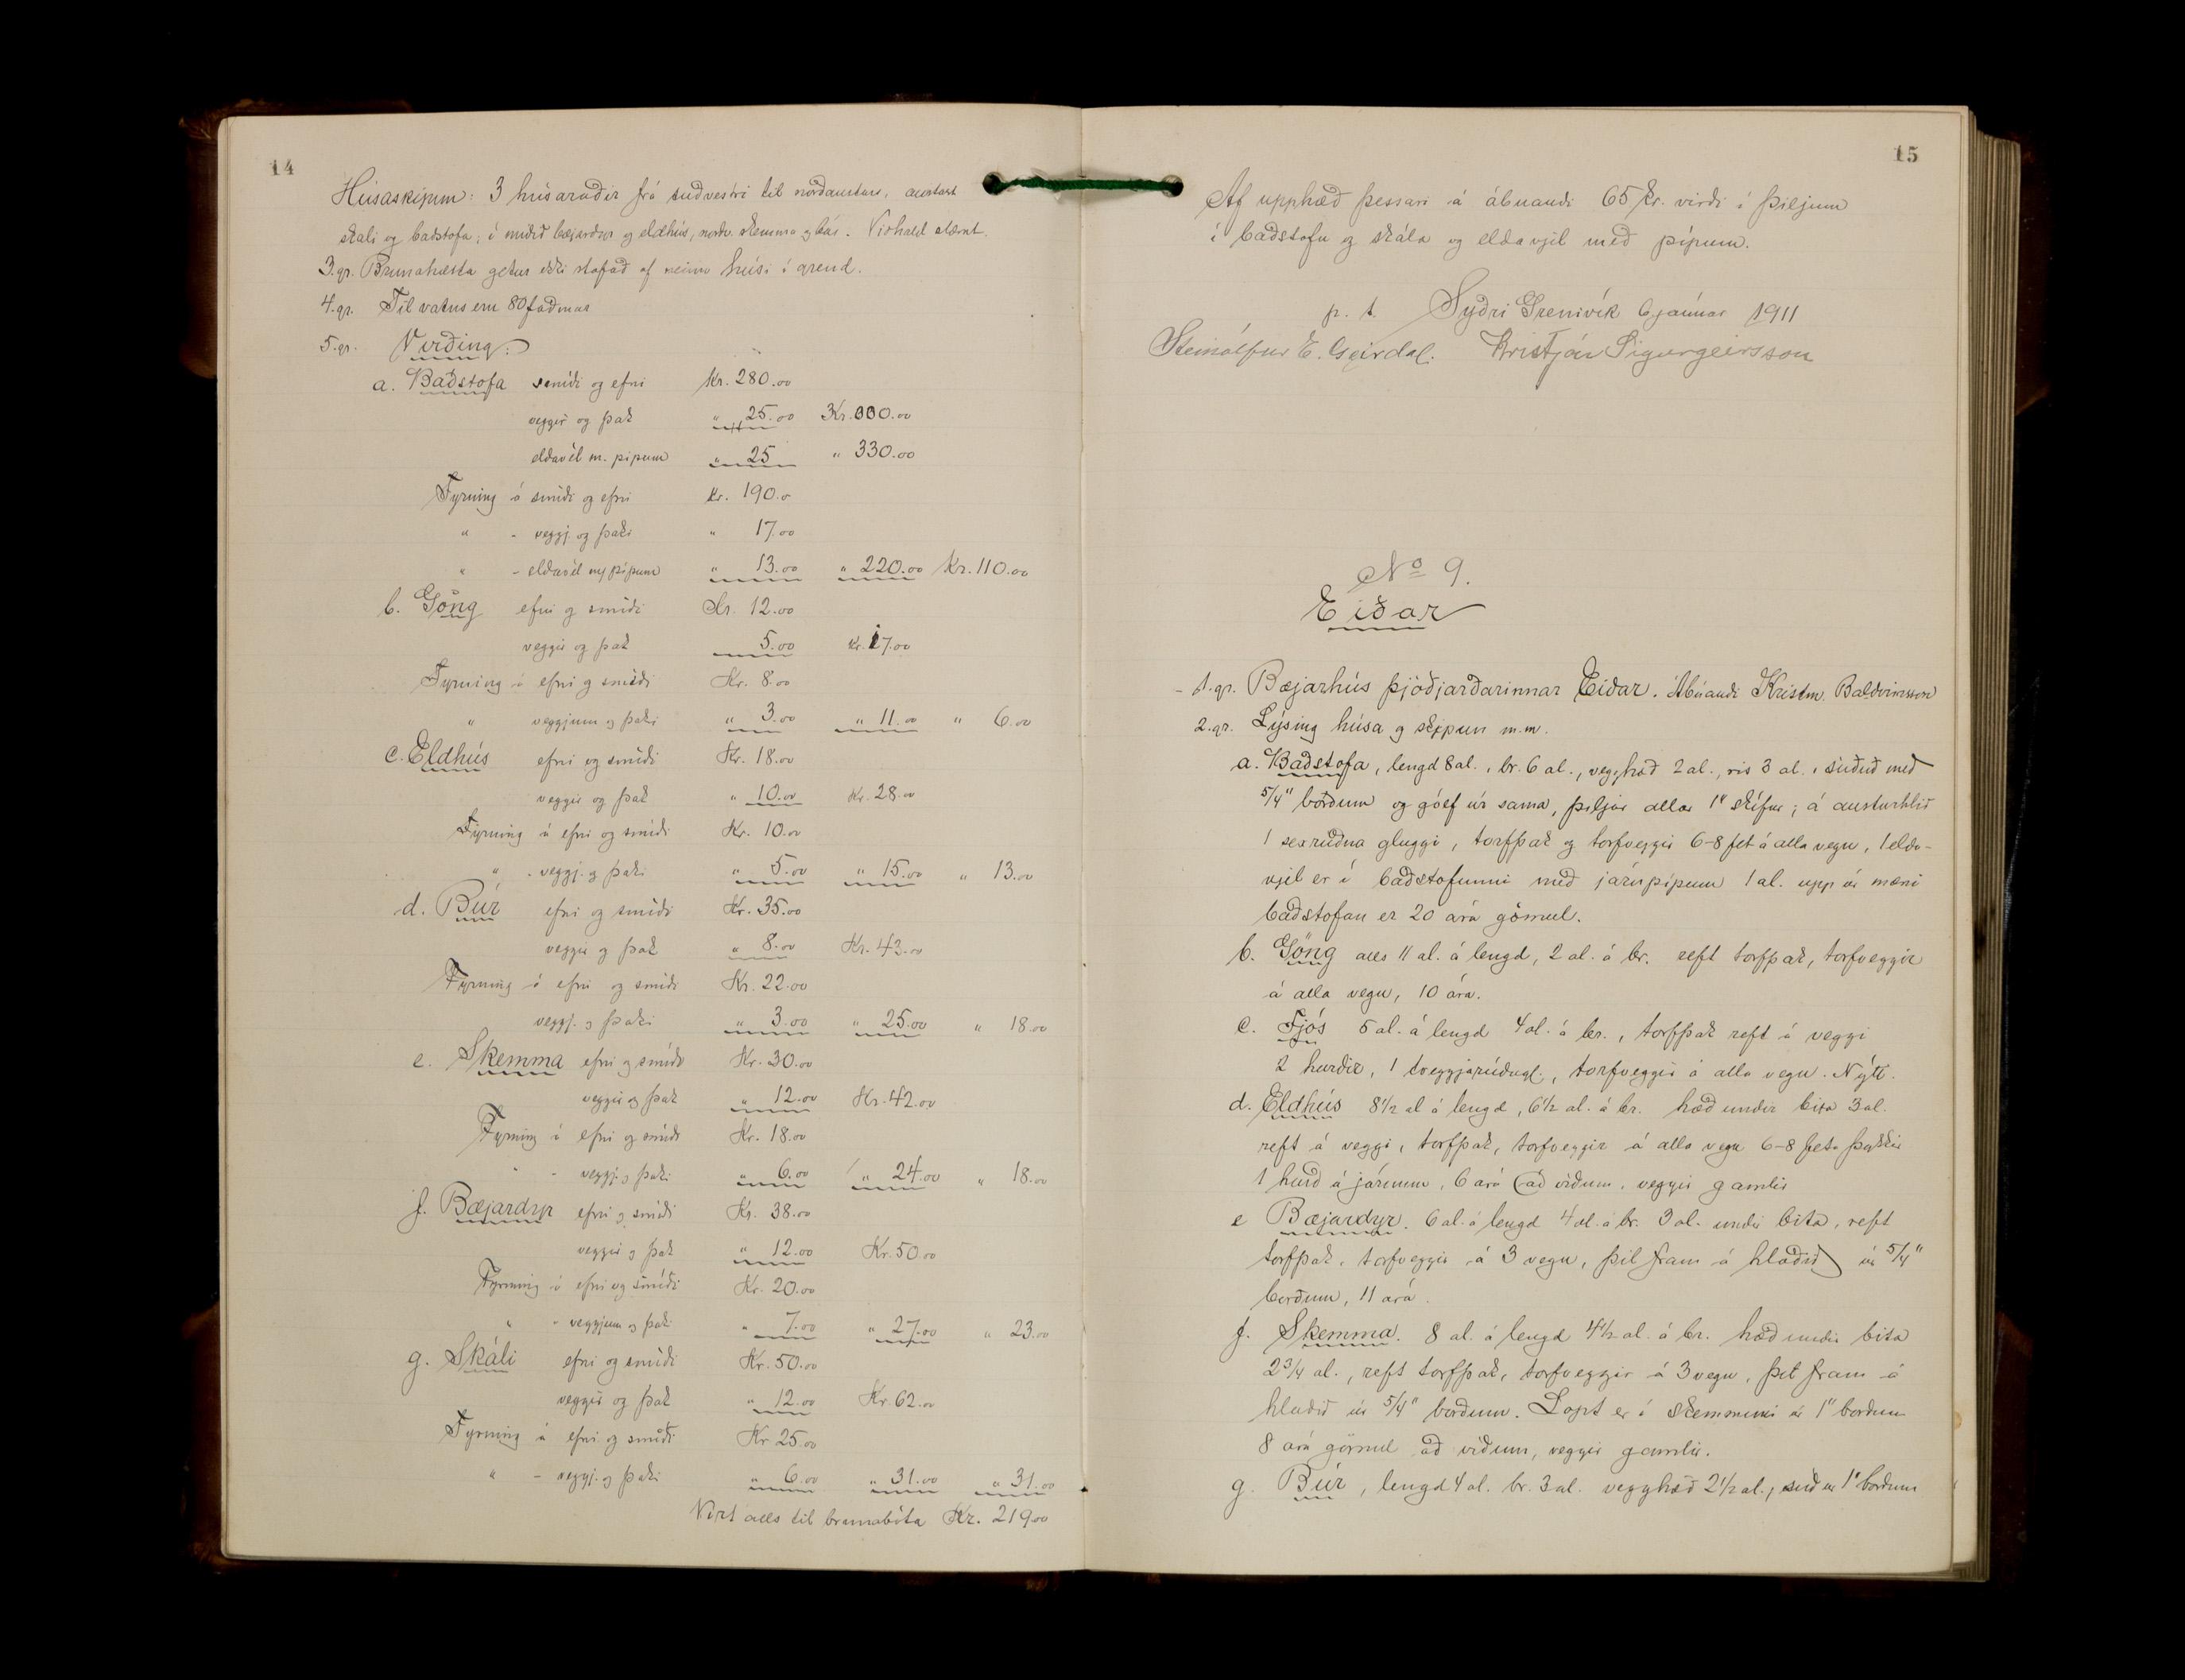 14
Húsaskipun: 3 húsaraðir frá suðvestri til norðausturs, austast
skáli og baðstofa; í miðið bæjardyr og eldhús, norðv. skemma og búr. Viðhald slæmt.
3.gr. Brunahætta getur ekki stafað af neinu húsi í grend.
4.gr. Til vatns eru 80 faðmar
5.gr. Virðing:
a. Baðstofa smíði og efni Kr. 280.00
veggir og þak " 25.00 3Kr.000.00
eldavél m. pípum " 25 " 330.00
Fyrning á smíði og efni Kr. 190.0
" - veggj. og þaki " 17.00
" - eldavél m/ pípum " 13.00 " 220.00 Kr. 110.00
b. Göng efni og smíði Kr. 12.00
veggir og þak 5.00 Kr. 17.00
Fyrning á efni og smíði Kr. 8.00
" veggjum og þaki " 3.00 " 11.00 " 6.00
c. Eldhús efni og smíði Kr. 18.00
veggir og þak " 10.00 Kr. 28.00
Fyrning á efni og smíði Kr. 10.00
" - veggj. og þaki " 5.00 " 15.00 " 13.00
d. Búr efni og smíði Kr. 35.00
veggir og þak " 8.00 Kr. 43.00
Fyrning á efni og smíði Kr. 22.00
veggj. og þaki " 3.00 " 25.00 " 18.00
e. Skemma efni og smíði Kr. 30.00
veggir og þak " 12.00 Kr. 42.00
Fyrning á efni og smíði Kr. 18.00
" - veggj. og þaki " 6.00 " 24.00 " 18.00
f. Bæjardyr efni og smíði Kr. 38.00
veggir og þak " 12.00 Kr. 50.00
Fyrning á efni og smíði Kr. 20.00
" - veggjum og þaki " 7.00 " 27.00 " 23.00
g. Skáli efni og smíði Kr. 50.00
veggir og þak " 12.00 Kr. 62.00
Fyrning á efni og smíði Kr 25.00
" - veggj. og þaki " 6.00 " 31.00 " 31.00
Virt alls til brunabóta Kr. 219.00
15
Af upphæð þessari á ábúandi 65 kr. virði í þiljum
í baðstofu og skála og eldavjel með pípum.
p. t. Syðri Grenivík 6 janúar 1911
Steinólfur E. Geirdal. Kristján Sigurgeirsson
No 9.
Eiðar
- 1.gr. Bæjarhús þjóðjarðarinnar Eiðar. Ábúandi Kristm. Baldvinsson
2.gr. Lýsing húsa og skipun m.m.
a. Baðstofa, lengd 8 al., br. 6 al., vegghæð 2 al., ris 3 al., súðuð með
5/4" borðum og gólf úr sama, þiljur allar 1" skífur; á austurhlið
1 sexrúðna gluggi, torfþak og torfveggir 6-8 fet á alla vegu, 1 elda-
vjel er í baðstofunni með járnpípum 1 al. upp úr mæni
baðstofan er 20 ára gömul.
b. Göng alls 11 al. á lengd, 2 al. á br. reft torfþak, torfveggir
á alla vegu, 10 ára.
c. Fjós 5 al. á lengd 4 al. á br., torfþak reft á veggi
2 hurðir, 1 tveggjarúðugl., torfveggir á alla vegu. Nýtt.
d. Eldhús 8 1/2 al á lengd, 6 1/2 al. á br. hæð undir bita 3 al.
reft á veggi, torfþak, torfveggir á alla vegu 6-8 feta þykkir
1 hurð á járnum, 6 ára (að viðum, veggir gamlir
e Bæjardyr. 6 al. á lengd 4 al. á br. 3 al. undir bita, reft
torfþak, torfveggir á 3 vegu, þil fram á hlaðið) úr 5/4"
borðum, 11 ára.
f. Skemma. 8 al. á lengd 4 1/2 al. á br. hæð undir bita
2 3/4 al., reft torfþak, torfveggir á 3 vegu, þil fram á
hlaðið úr 5/4" borðum. Lopt er í skemmunni úr 1" borðum
8 ára gömul að viðum, veggir gamlir.
g. Búr, lengd 4 al. br. 3 al. vegghæð 2 1/2 al., súð úr 1" borðum